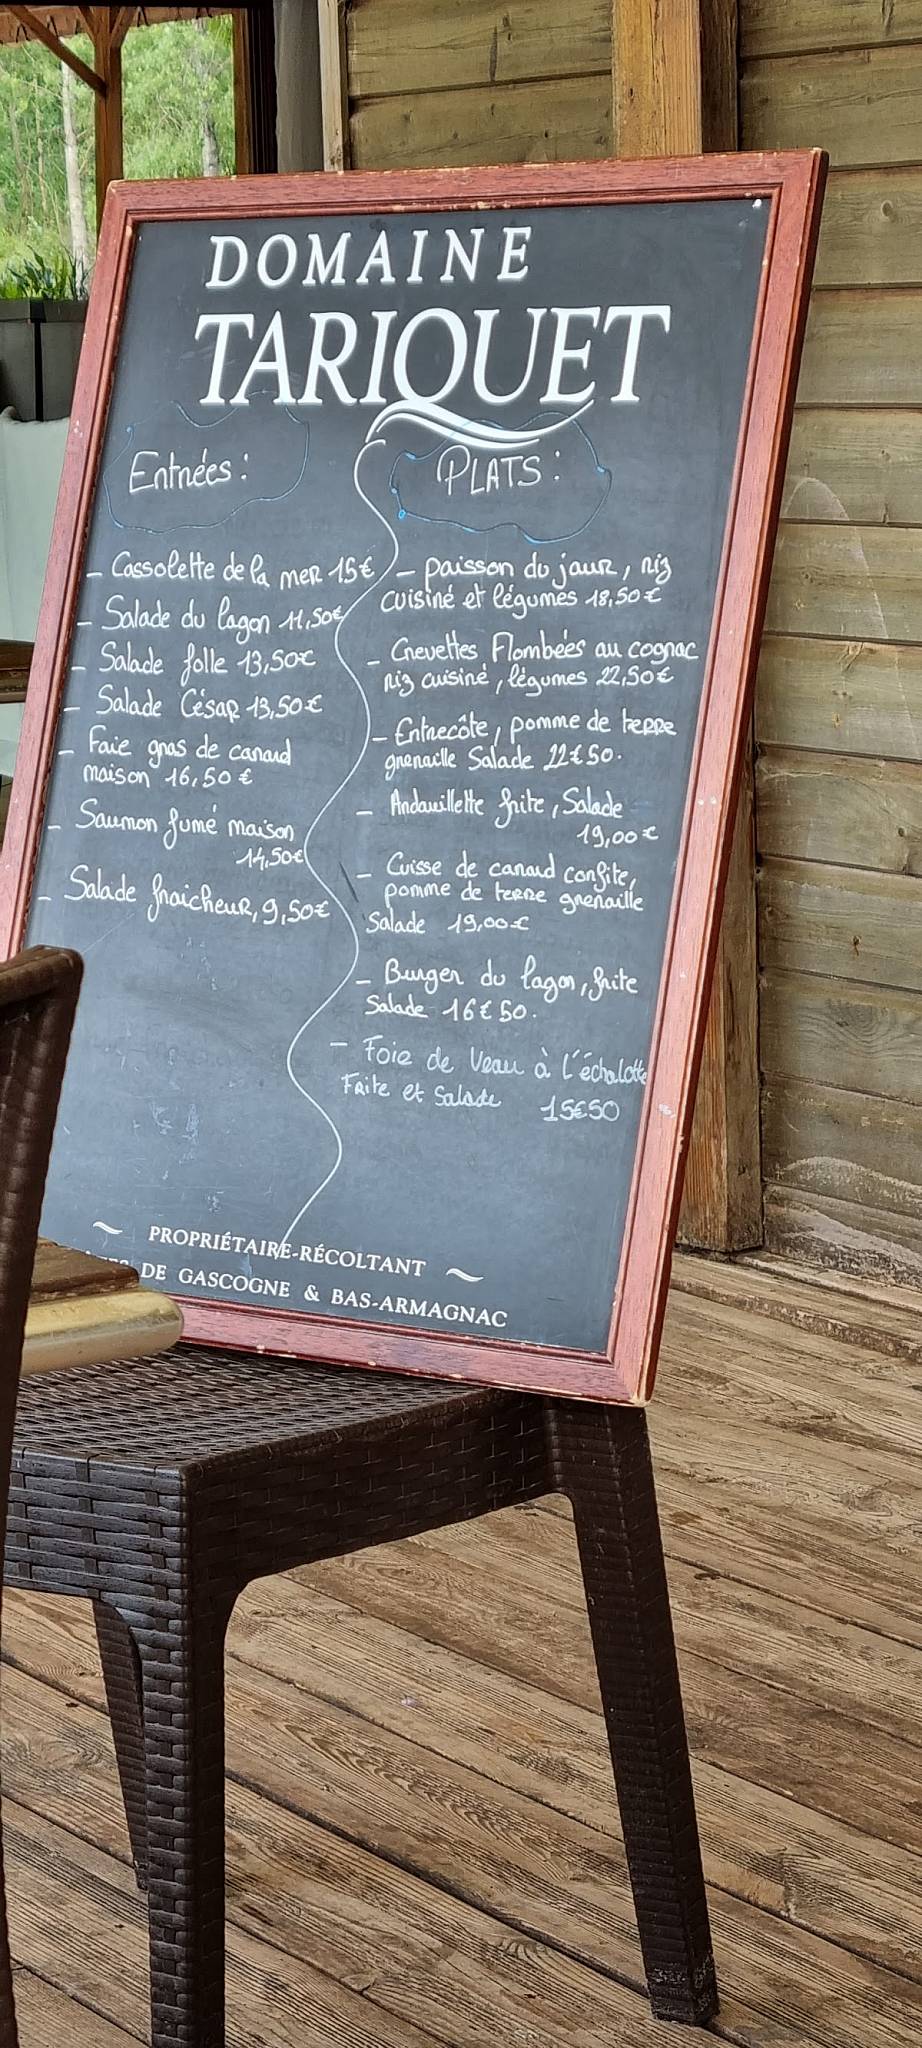 DOMAINE
TARIQUET
Entrées :
- Cassolette de la mer 15€
- Salade du lagon 11,50€
- Salade folle 13,50€
- Salade César 13,50€
- Foie gras de canard
maison 16,50 €
- Saumon fumé maison
14,50€
- Salade fraicheur, 9,50€
PLATS :
- poisson du jour, riz
cuisiné et légumes 18,50€
- Crevettes Flambées au cognac
riz cuisiné, légumes 22,50€
- Entrecôte, pomme de terre
grenaille Salade 22€50.
- Andouillette frite, Salade
19,00€
- Cuisse de canard confite,
pomme de terre grenaille
Salade 19,00€
- Burger du lagon, frite
Salade 16€50.
- Foie de Veau à l'échalotte
Frite et Salade 15€50
PROPRIÉTAIRE-RÉCOLTANT
DE GASCOGNE & BAS-ARMAGNAC